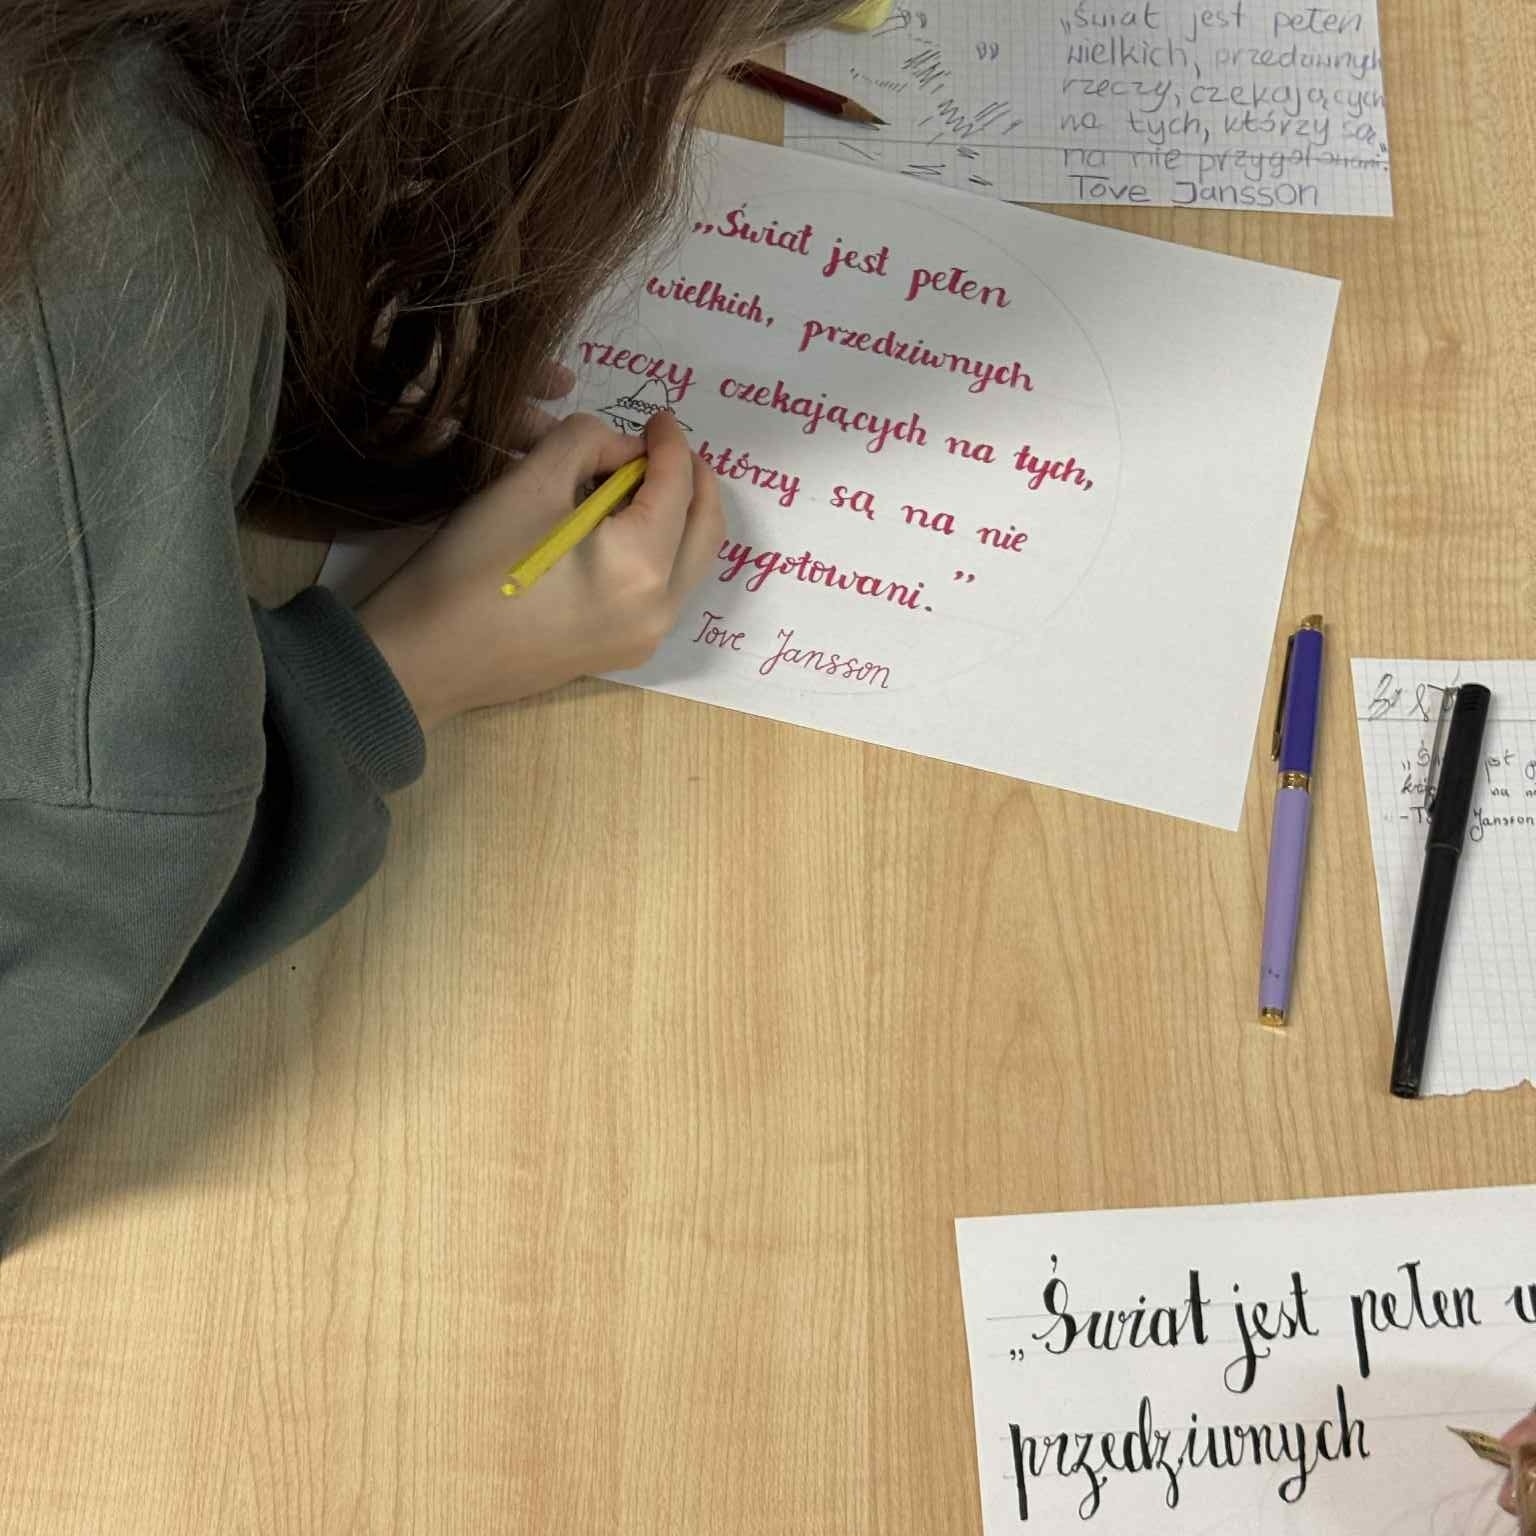 „Świat jest pełen
wielkich, przedziwnych
rzeczy, czekających
na tych, którzy są
na nie przygotowani.
Tove Jansson
„Świat jest pełen
wielkich, przedziwnych
rzeczy czekających na tych,
którzy są na nie
ygotowani.”
Tove Jansson
jest
na
Jansson
„Świat jest pełen
przedziwnych